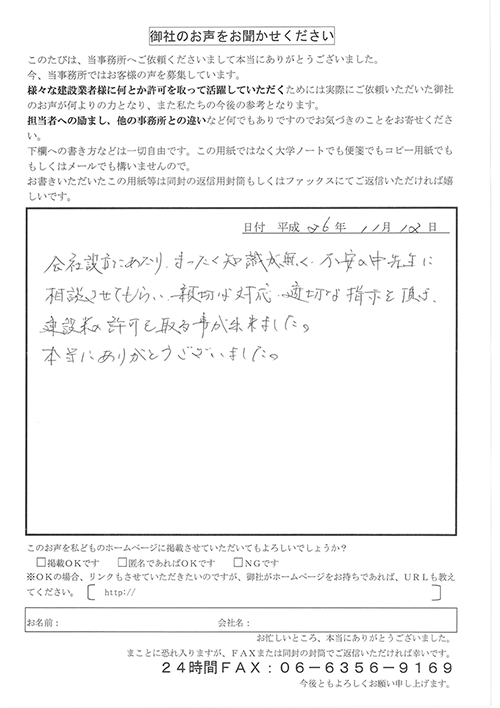 御社のお声をお聞かせください
このたびは、当事務所へご依頼くださいまして本当にありがとうございました。
今、当事務所ではお客様の声を募集しています。
様々な建設業者様に何とか許可を取って活躍していただくためには実際にご依頼いただいた御社
のお声が何よりの力となり、また私たちの今後の参考となります。
担当者への励まし、他の事務所との違いなど何でもありですのでお気づきのことをお寄せくださ
い。
下欄への書き方などは一切自由です。この用紙ではなく大学ノートでも便箋でもコピー用紙でも
もしくはメールでも構いませんので。
お書きいただいたこの用紙等は同封の返信用封筒もしくはファックスにてご返信いただければ嬉
しいです。
日付 平成 26年 11月 12日
会社設立にあたり、まったく知識が無く、不安の中先生に
相談させてもらい、親切な対応、適切な指示を頂き、
建設業の許可を取る事が出来ました。
本当にありがとうございました。
このお声を私どものホームページに掲載させていただいてもよろしいでしょうか？
□掲載OKです □匿名であればOKです □NGです
※OKの場合、リンクもさせていただきたいのですが、御社がホームページをお持ちであれば、URLも教え
てください。〔 http:// 〕
お名前： 会社名：
お忙しいところ、本当にありがとうございました。
まことに恐れ入りますが、FAXまたは同封の封筒でご返信いただければ幸いです。
24時間FAX：06-6356-9169
今後ともよろしくお願い申し上げます。